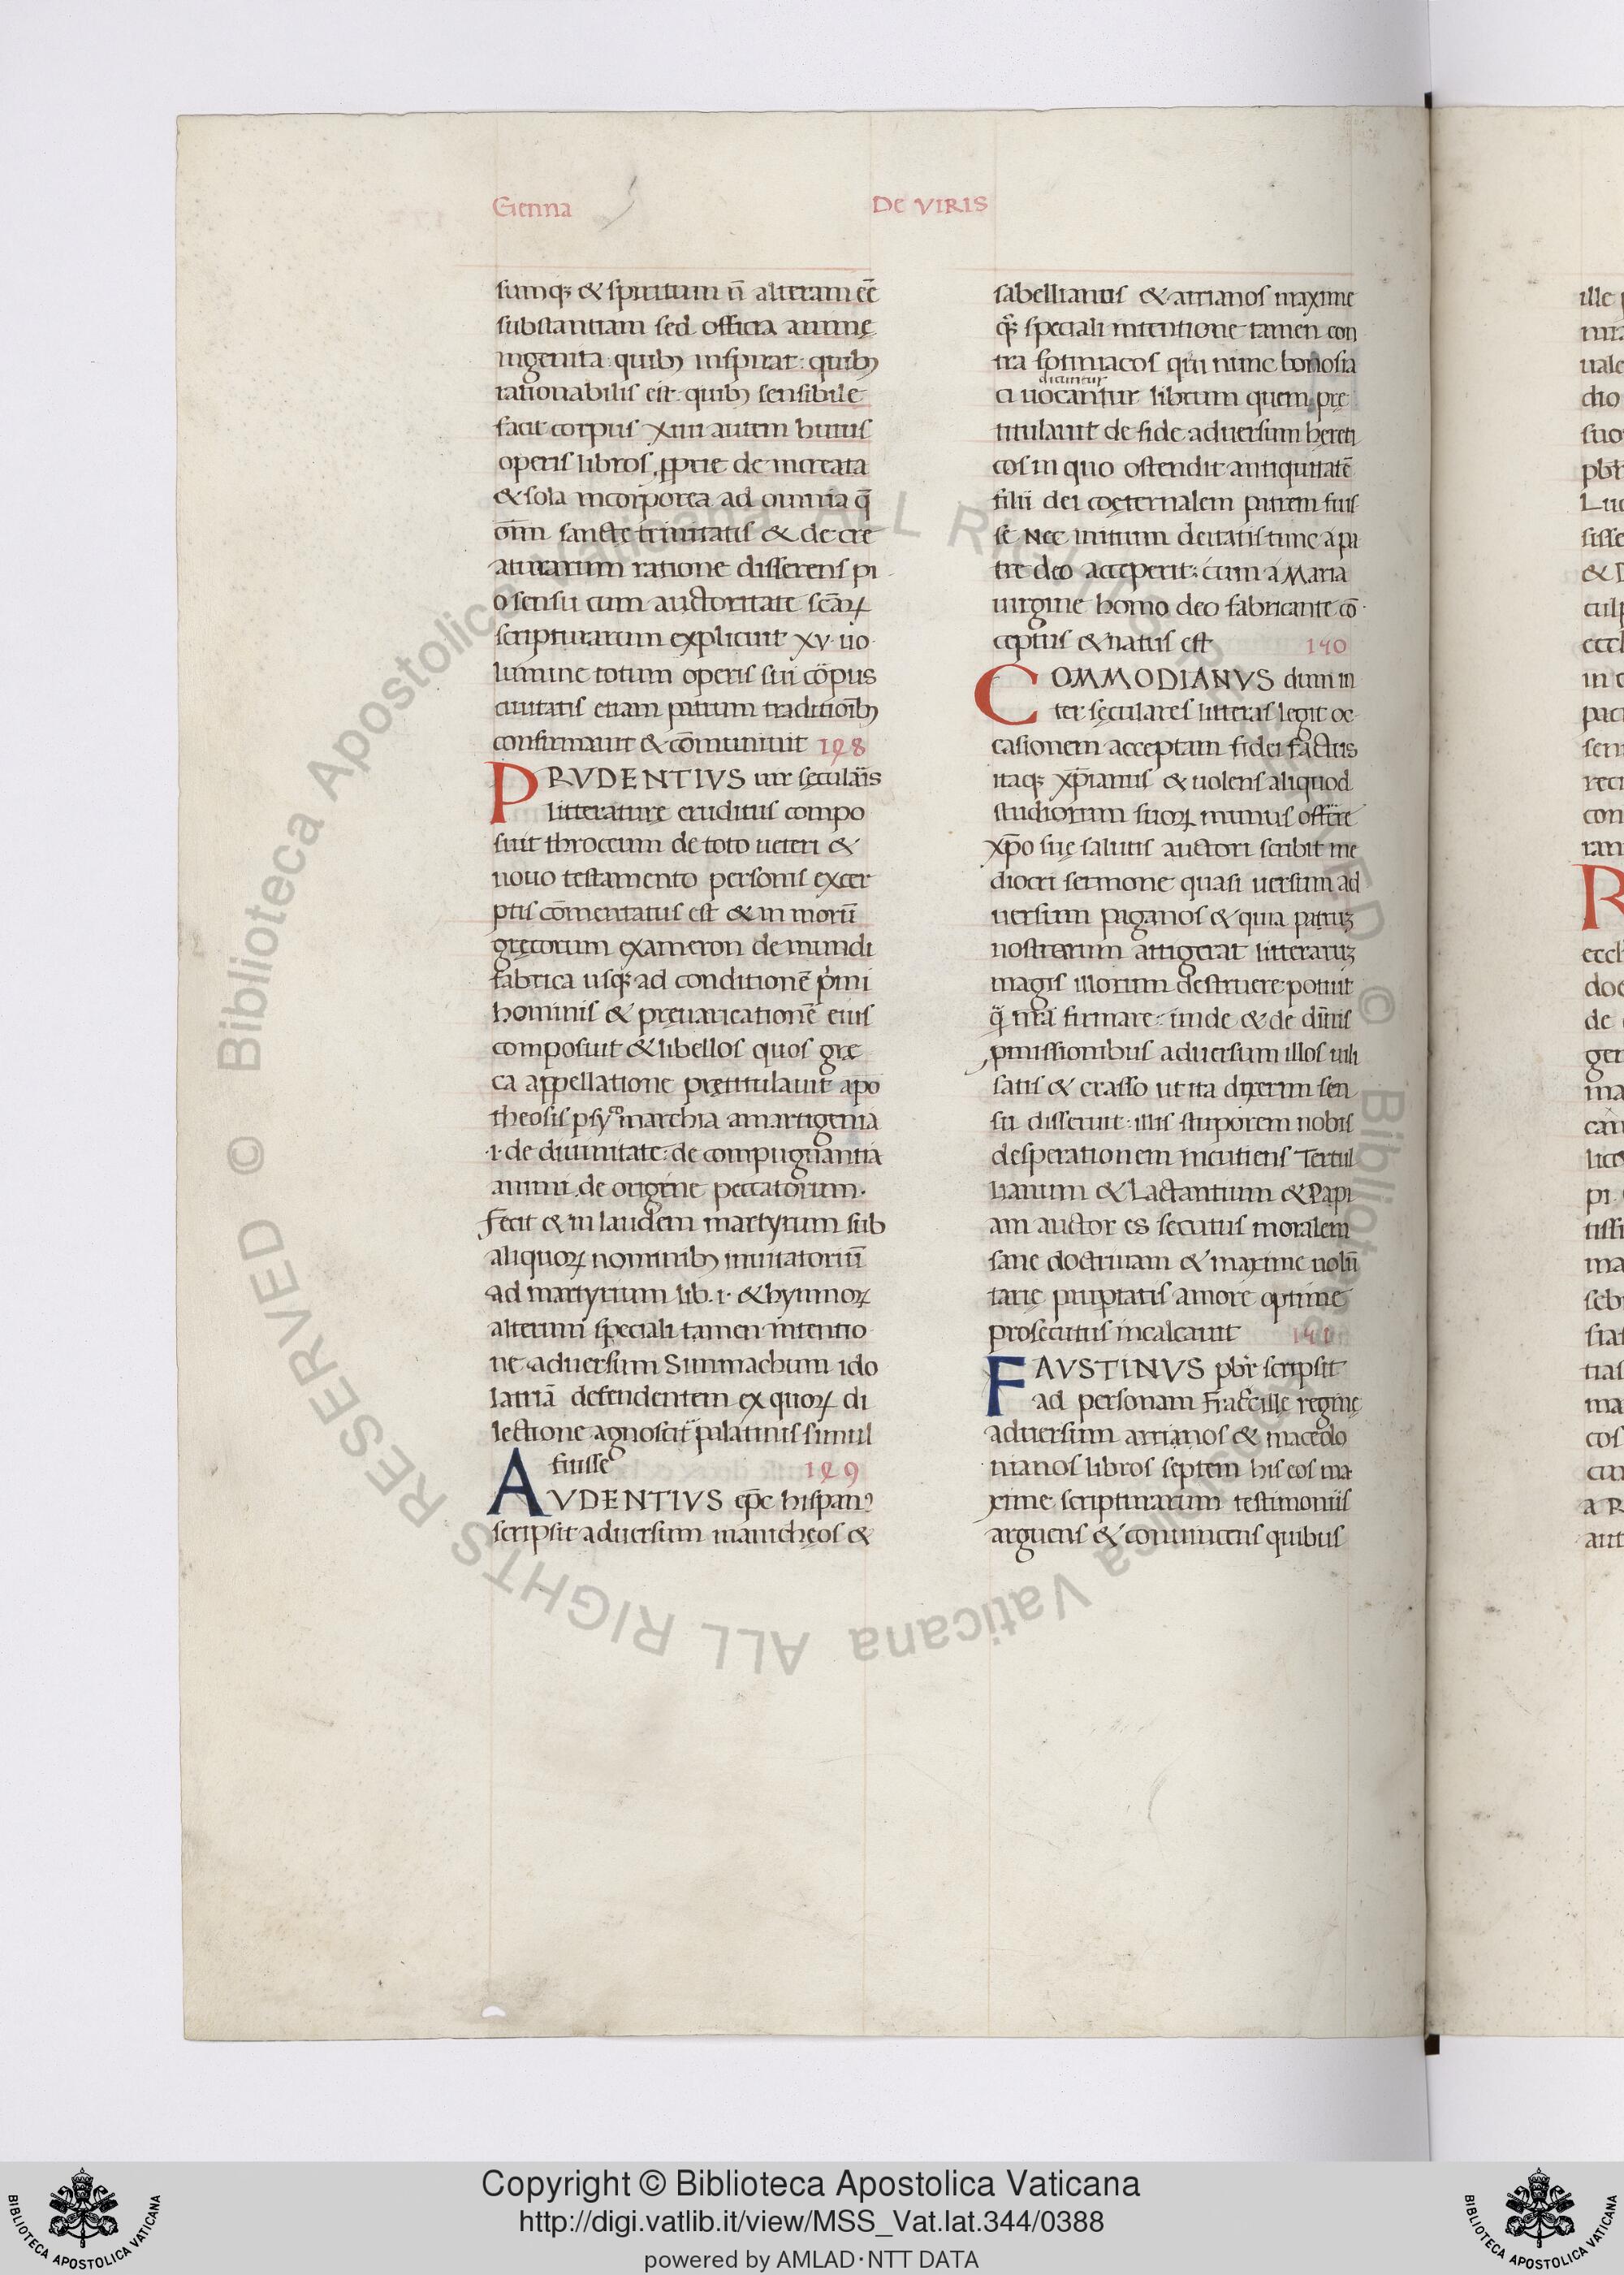 Genna
DE VIRIS
sumq; & spiritum n̄ alteram eē̄
substantiam sed officia animę
ingenita quib; inspirat: quib;
rationabilis est quib; sensibile
facit corpus xiiii autem huius
operis libros ꝓprie de increata
& sola incorporea ad omnia q̄
om̄i sancte trinitatis & de cre
aturarum ratione disserens pi
o sensu cum auctoritate scāꝝ
scripturarum explicuit xv uo
lumine totum operis sui cōpus
ciuitatis etiam patrum traditioīb;
confirmauit & cōmuniuit 128
PRVDENTIVS uir seculāis
litteraturę eruditus compo
suit throceum de toto ueteri &
nouo testamento personis excer
ptis cōmentatus est & in morū
gręcorum exameron de mundi
fabrica usq; ad conditionē pͥmi
hominis & pręuaricationē eius
composuit & libellos quos grę
ca appellatione prętitulauit apo
theosis psyͦmarchia amartigenia
.i. de diuinitate: de compugnantia
animi de origine peccatorum.
Fecit & in laudem martyrum sub
aliquoꝝ nominib; inuitatoriū
ad martyrium lib. i. & hymnoꝝ
alterum speciali tamen intentio
ne aduersum Simmachum ido
latriā defendentem ex quoꝝ di
lectione agnoscit᷑ palatinis simul
fuisse 129
AVDENTIVS ep̄c hispanꝰ
scripsit aduersum manichęos &
sabellianus & arrianos maxime
q̄ꝫ speciali intentione tamen con
tra fotiniacos qui nunc bonosia
dicuntur
ci uocantur librum quem prę
titulauit de fide aduersum hereti
cos in quo ostendit antiquitatē
filii dei coęternalem patrem fuis
se Nec initium deitatis tunc a pa
tre deo acceperit: cum a Maria
uirgine homo deo fabricante cō
ceptus & natus est 130
COMMODIANVS dum in
ter sęculares litteras legit oc
casionem acceptam fidei factus
itaq; xp̄ianus & uolens aliquod
studiorum suoꝝ munus offerre
xp̄o suę salutis auctori scribit me
diocri sermone quasi uersum ad
uersum paganos & quia patruꝫ
nostrarum attigerat litteraruꝫ
magis illorum destruere potuit
q̄ nr̄a firmare: unde & de diuīis
ꝓmissionibus aduersum illos uili
satis & crasso ut ita dixerim sen
su disseruit: illis stuporem nobis
desperationem incutiens Tertul
lianum & Lactantium & Papi
am auctor es secutus moralem
sane doctrinam & maxime uolū
tarię pauptatis amore optime
prosecutus incalcauit 131
FAVSTINVS pb̄r scripsit
ad personam Fraccille reginę
aduersum arrianos & macedo
nianos libros septem his eos ma
xime scripturarum testimoniis
arguens & conuincens quibus
Copyright © Biblioteca Apostolica Vaticana
http://digi.vatlib.it/view/MSS_Vat.lat.344/0388
powered by AMLAD·NTT DATA